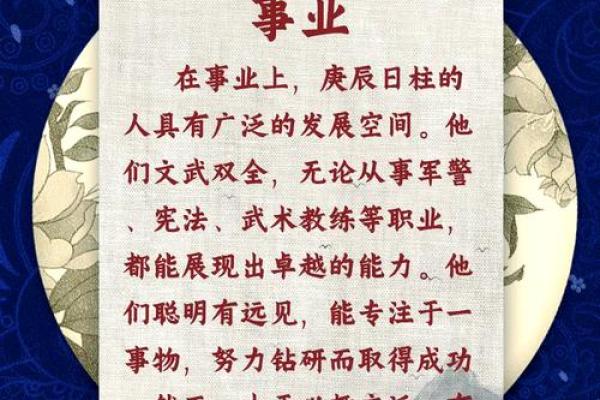 事业
在事业上，庚辰日柱的
人具有广泛的发展空间。他
们文武双全，无论从事军警
、宪法、武术教练等职业，
都能展现出卓越的能力。他
们聪明有远见，能专注于一
事物，努力钻研而取得成功